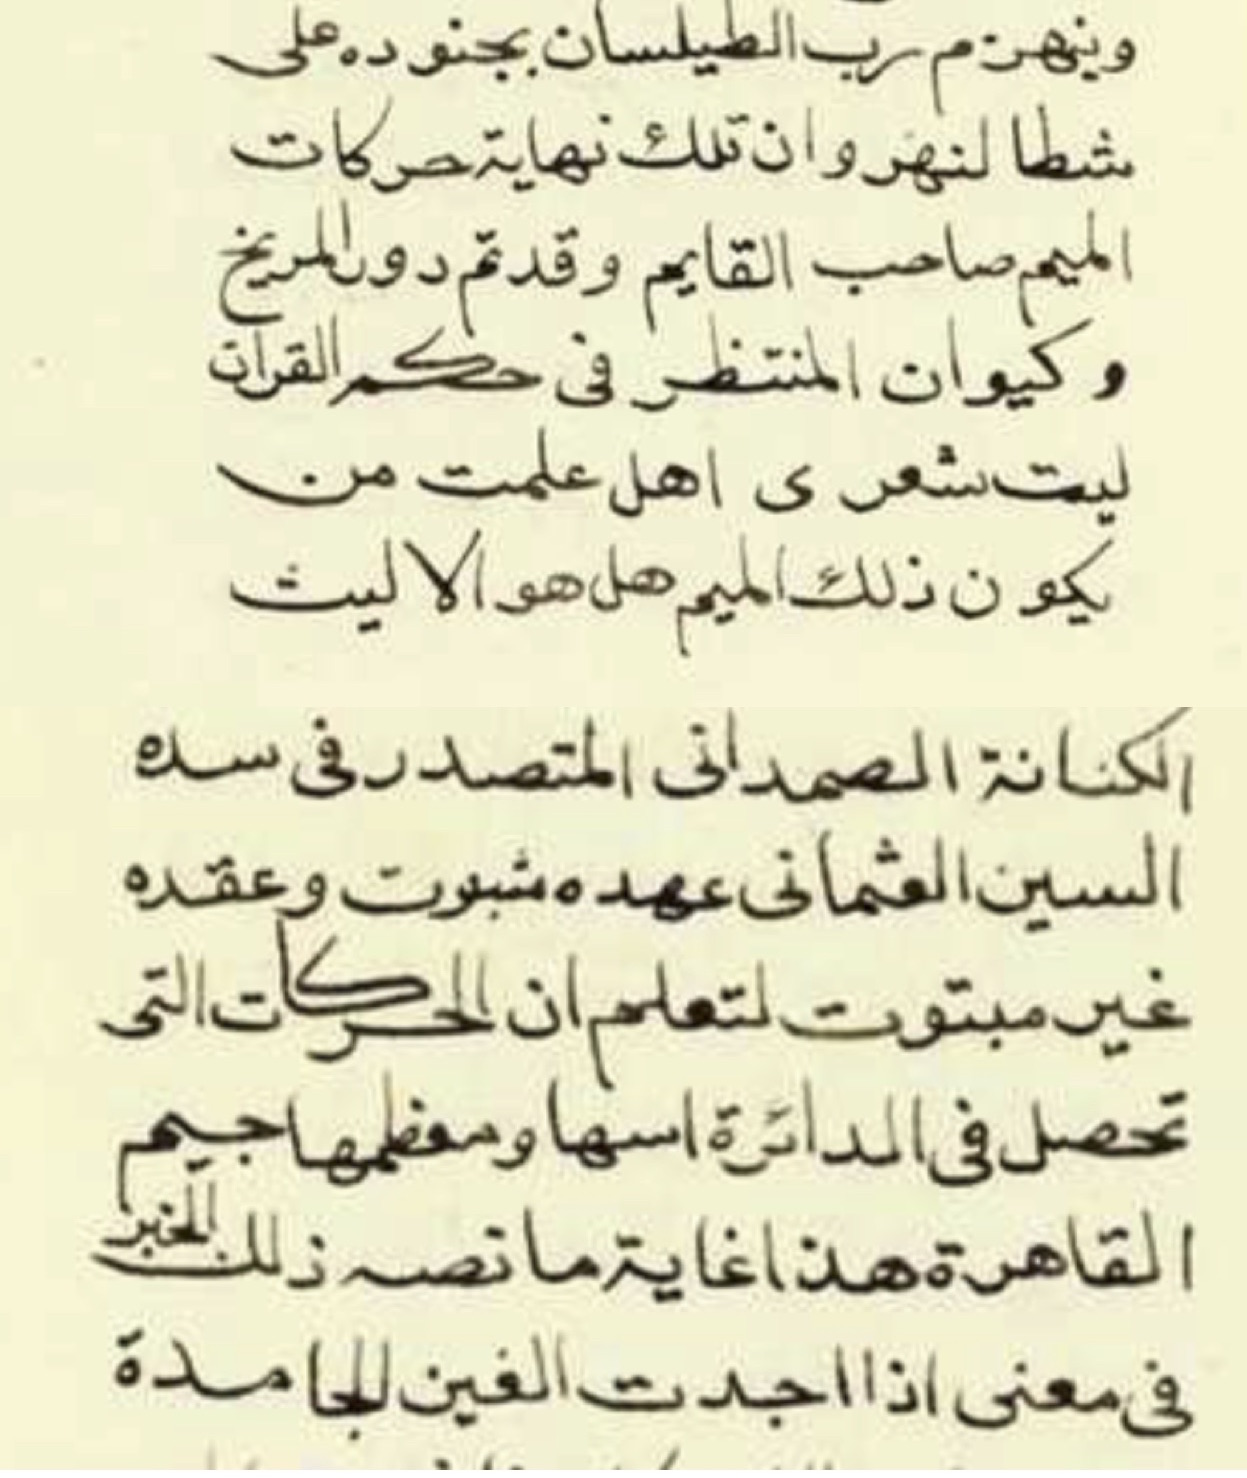 وينهزم رب الطيلسان بجنوده على
شطا لنهر وان تلك نهاية حركات
الميم صاحب القايم وقد تم دور المريخ
وكيوان المنتظر في حكم القران
ليت شعرى اهل علمت من
يكون ذلك الميم هل هو الا ليث
الكنانة الصمدانى المتصدر فى سده
السين العثمانى عهده مثبوت وعقده
غير مبتوت لتعلم ان الحركات التى
تحصل فى الدائرة اسها ومعظمها جيم
القاهرة هذا غاية ما نصه ذلك الخبر
فى معنى اذا اجدت الغين الجامدة